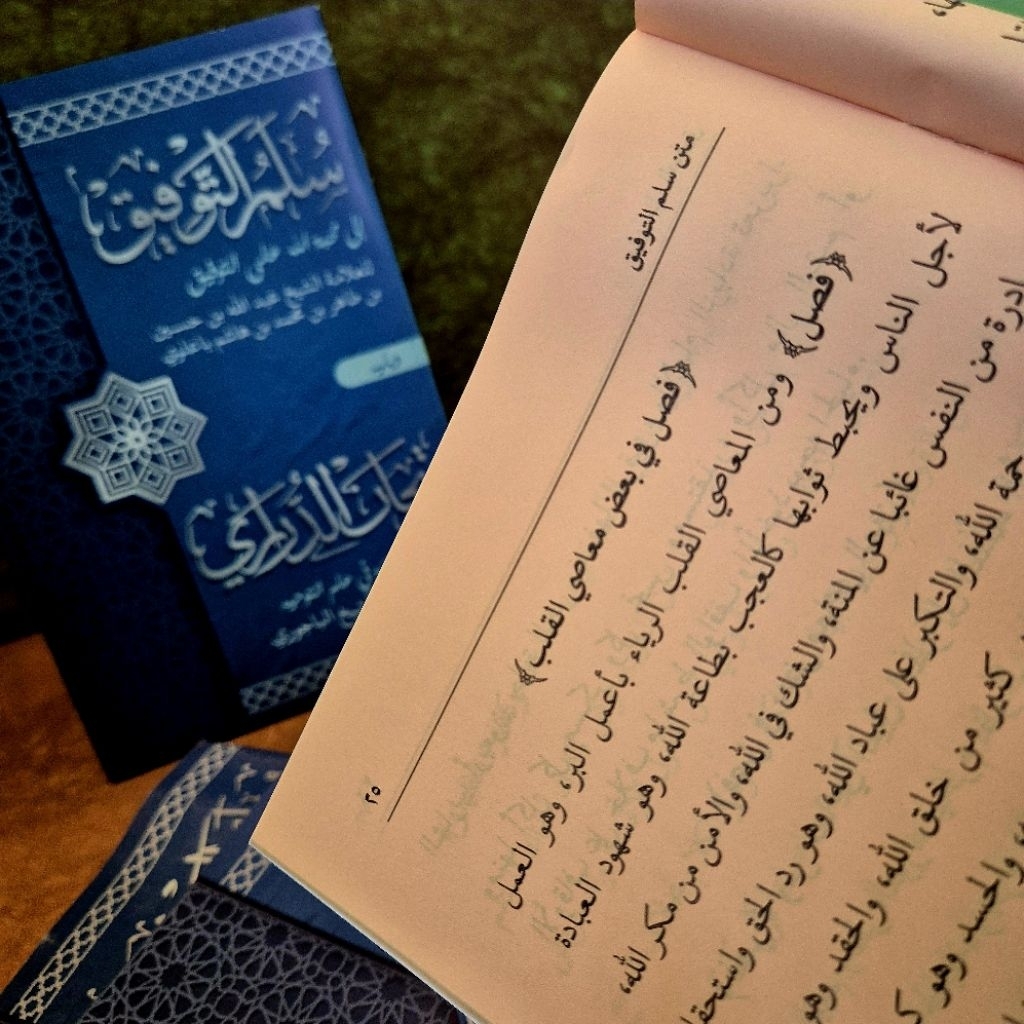 سلم التوفيق
إلى محبة الله على التحقيق
للعلامة الشيخ عبد الله بن حسين
بن طاهر بن محمد بن هاشم باعلوي
ويليه
تيجان الدراري
في علم التوحيد
الشيخ الباجوري
متن سلم التوفيق
٢٥
﴿فصل في بعض معاصي القلب﴾
﴿فصل﴾ ومن المعاصي القلب الرياء بأعمل البر، وهو العمل
لأجل الناس ويحبط ثوابها كالعجب بطاعة الله، وهو شهود العبادة
ادرة من النفس غائبا عن المنة، والشك في الله، والأمن من مكر الله،
حمة الله، والتكبر على عباد الله، وهو رد الحق واستحقا
كثير من خلق الله، والحقد وهو
والحسد وهو